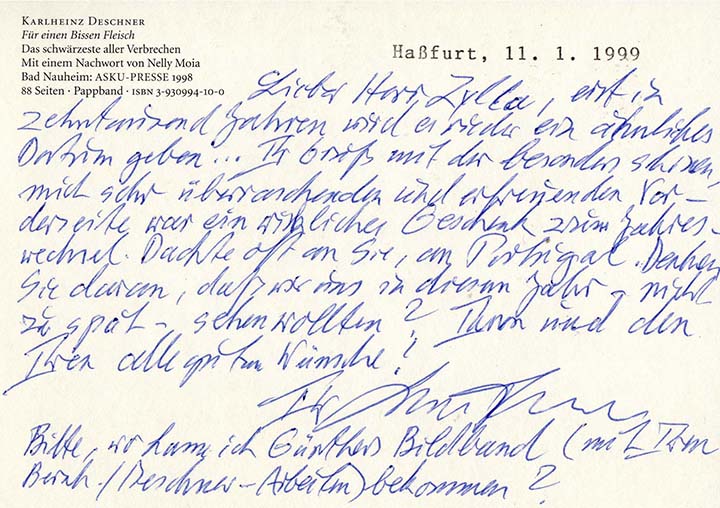 KARLHEINZ DESCHNER
Für einen Bissen Fleisch
Das schwärzeste aller Verbrechen
Mit einem Nachwort von Nelly Moia
Bad Nauheim: ASKU-PRESSE 1998
88 Seiten · Pappband · ISBN 3-930994-10-0
Haßfurt, 11. 1. 1999
Lieber Herr Zylla, erst in
zehntausend Jahren wird es wieder ein ähnliches
Datum geben... Ihr Gruß mit der besonders schönen,
mich sehr überraschenden und erfreuenden Vor-
derseite war ein wirkliches Geschenk zum Jahres-
wechsel. Dachte oft an Sie, an Portugal. Denken
Sie daran, daß wir uns in diesem Jahr – nicht
zu spät – sehen wollten? Ihnen und den
Ihren alle guten Wünsche!
Ihr
Bitte, wo kann ich Günthers Bildband (mit Ihren
Deschner-Arbeiten) bekommen?